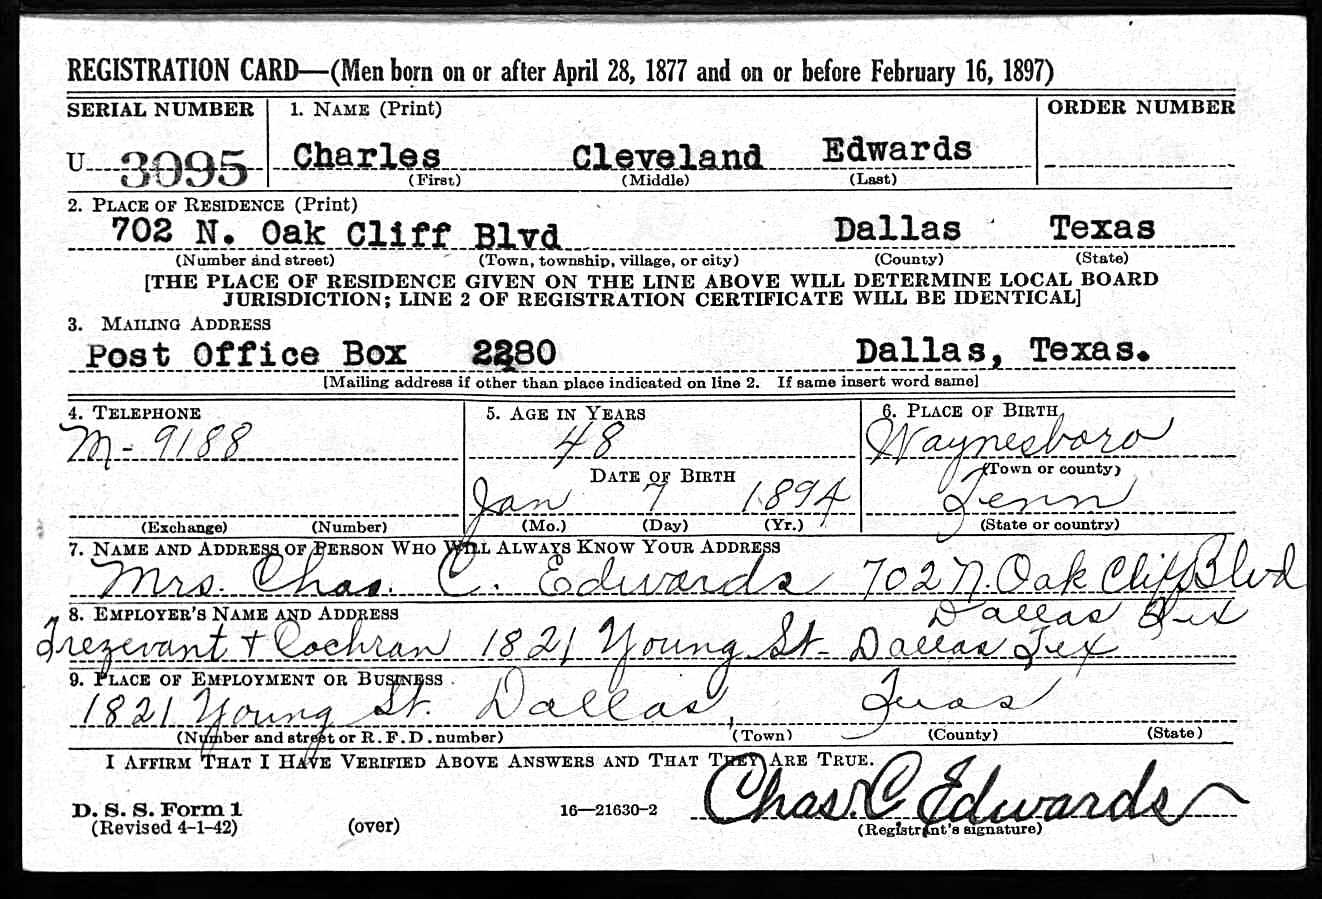 REGISTRATION CARD—(Men born on or after April 28, 1877 and on or before February 16, 1897)
SERIAL NUMBER 1. NAME (Print) ORDER NUMBER
U 3095 Charles Cleveland Edwards
(First) (Middle) (Last)
2. PLACE OF RESIDENCE (Print)
702 N. Oak Cliff Blvd Dallas Texas
(Number and street) (Town, township, village, or city) (County) (State)
[THE PLACE OF RESIDENCE GIVEN ON THE LINE ABOVE WILL DETERMINE LOCAL BOARD
JURISDICTION; LINE 2 OF REGISTRATION CERTIFICATE WILL BE IDENTICAL]
3. MAILING ADDRESS
Post Office Box 2280 Dallas, Texas.
[Mailing address if other than place indicated on line 2. If same insert word same]
4. TELEPHONE 5. AGE IN YEARS 6. PLACE OF BIRTH
M-9188 48 Waynesboro
DATE OF BIRTH (Town or county)
Jan 7 1894 Tenn
(Exchange) (Number) (Mo.) (Day) (Yr.) (State or country)
7. NAME AND ADDRESS OF PERSON WHO WILL ALWAYS KNOW YOUR ADDRESS
Mrs. Chas. C. Edwards 702 N. Oak Cliff Blvd
8. EMPLOYER'S NAME AND ADDRESS Dallas Tex
Trezevant + Cochran 1821 Young St- Dallas Tex
9. PLACE OF EMPLOYMENT OR BUSINESS
1821 Young St. Dallas, Texas
(Number and street or R. F. D. number) (Town) (County) (State)
I AFFIRM THAT I HAVE VERIFIED ABOVE ANSWERS AND THAT THEY ARE TRUE.
D. S. S. Form 1 16—21630-2 Chas. C Edwards
(Revised 4-1-42) (over) (Registrant's signature)